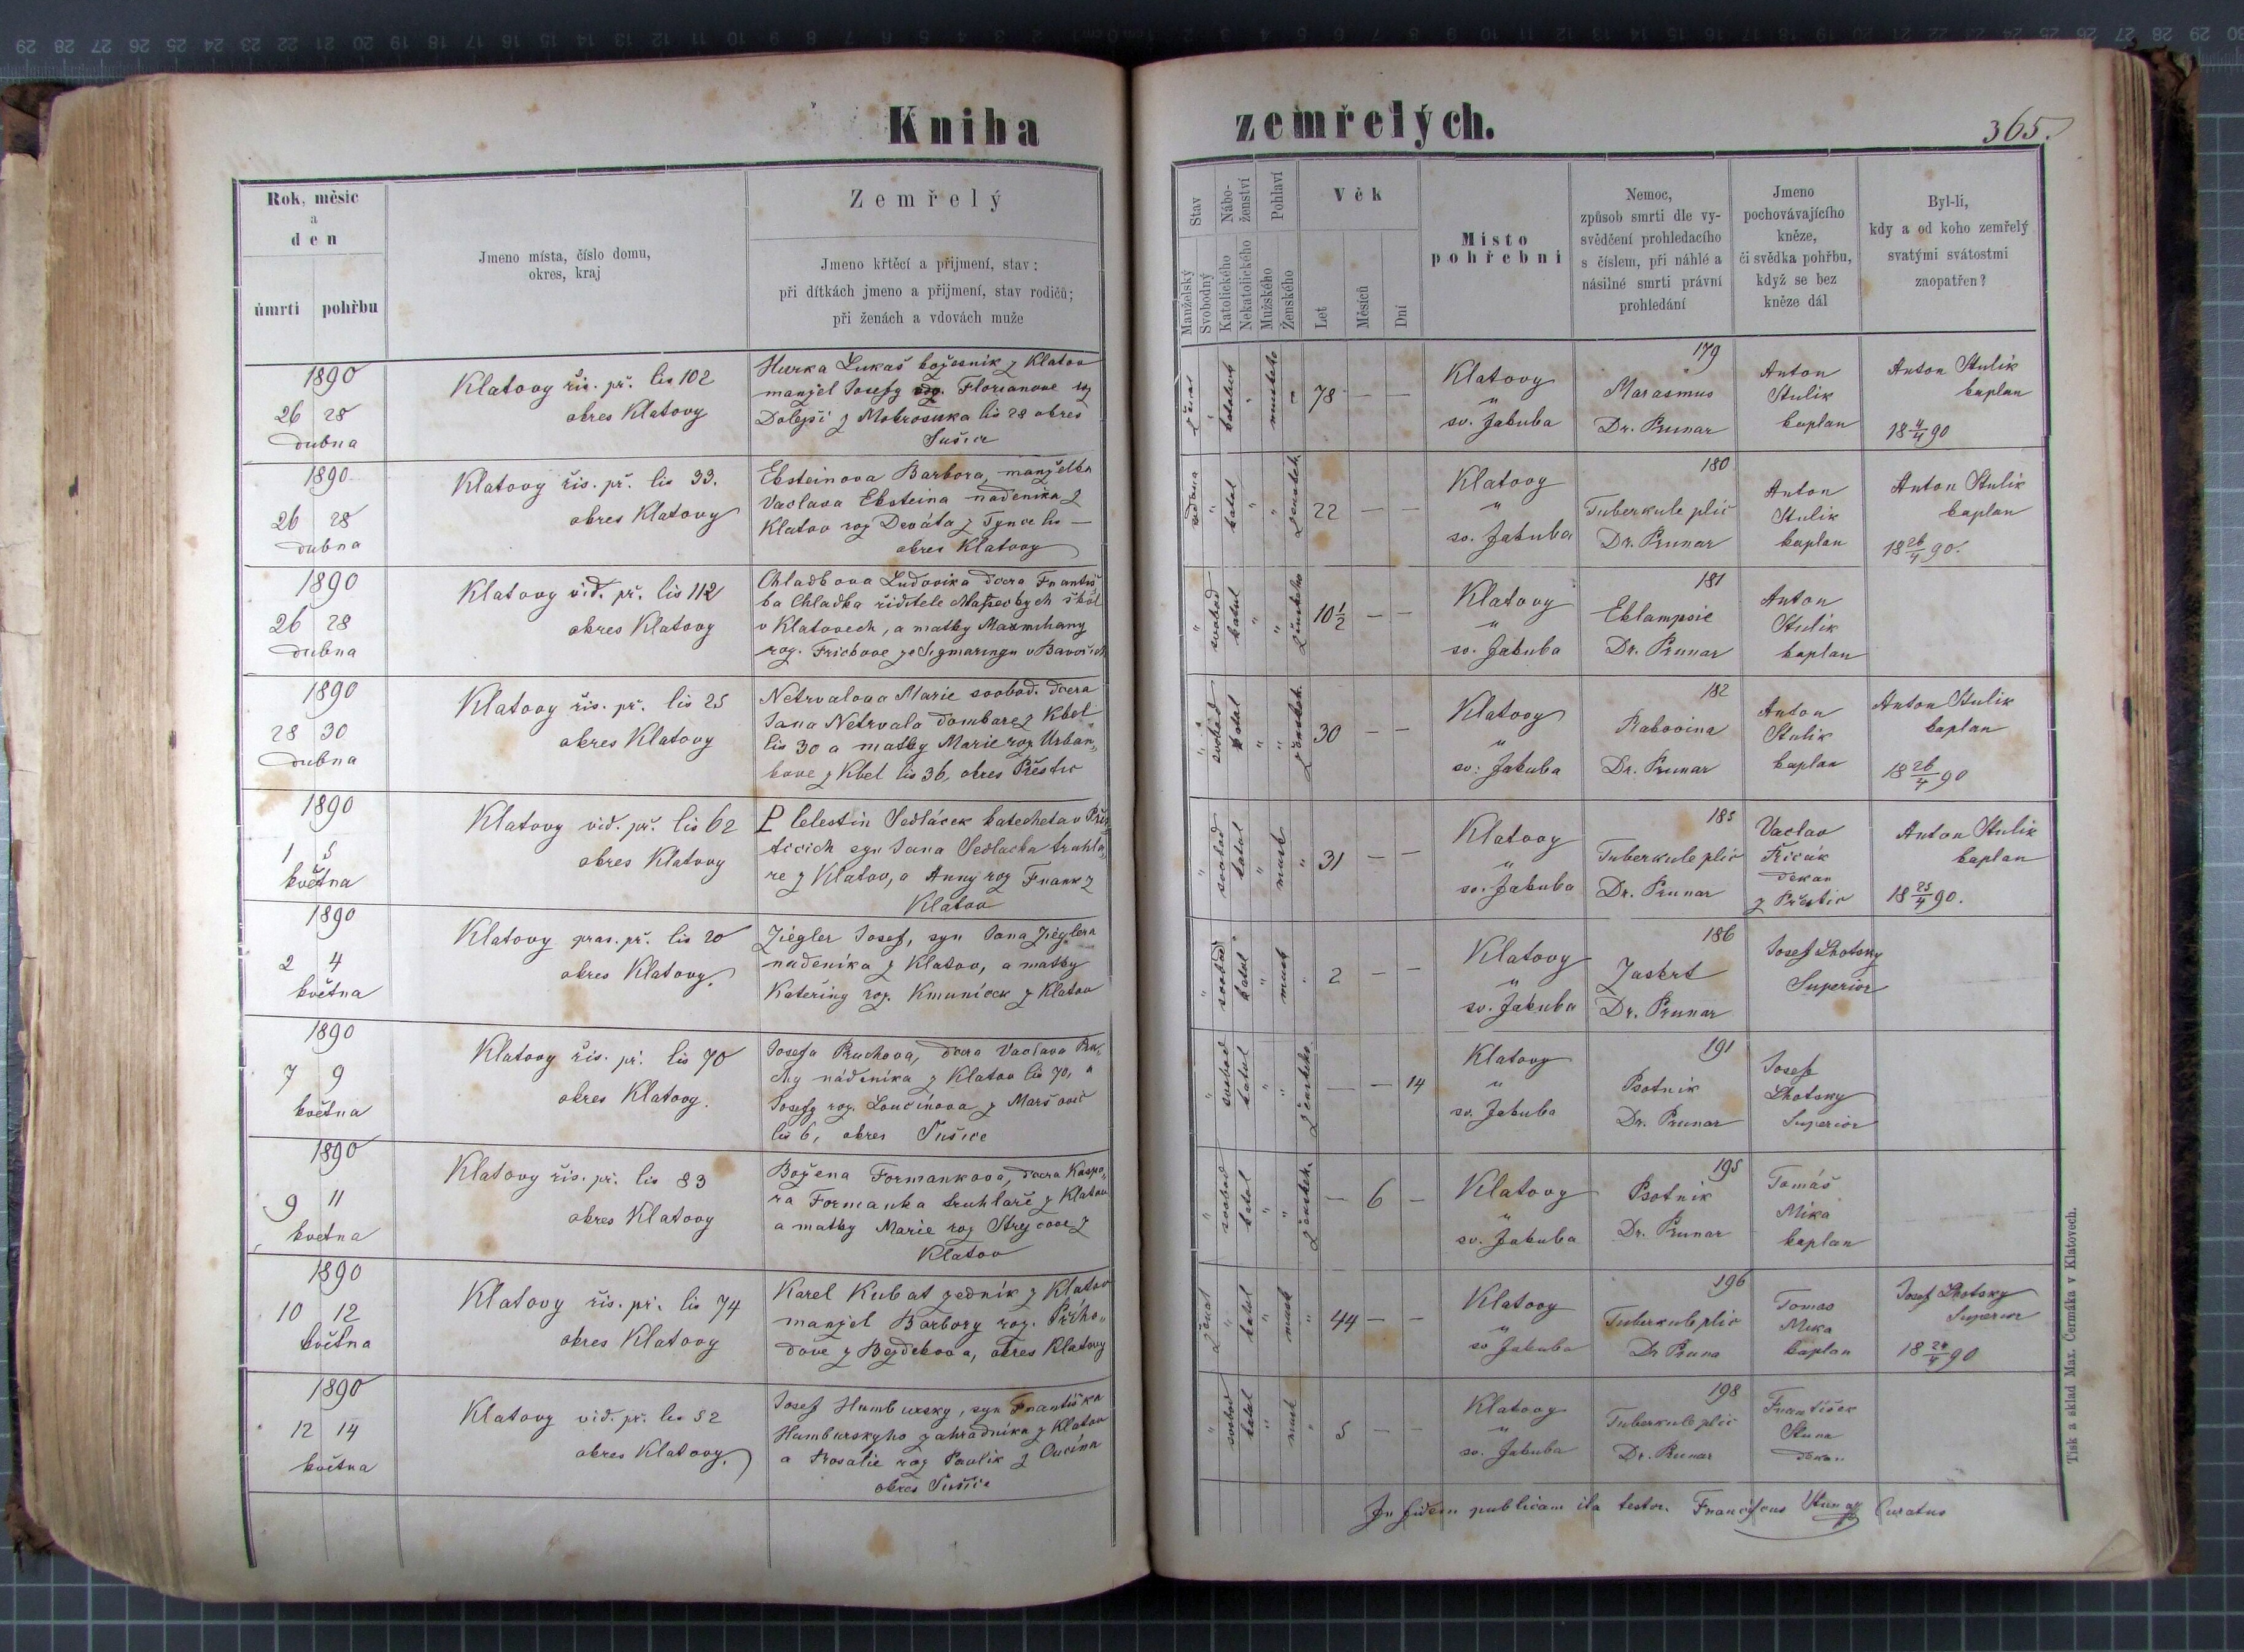 Kniha zemřelých.
365.
Rok, měsíc
a
den
úmrtí pohřbu
Jmeno místa, číslo domu,
okres, kraj
Zemřelý
Jmeno křtěcí a přijmení, stav:
při dítkách jmeno a přijmení, stav rodičů;
při ženách a vdovách muže
Stav
Manželský
Svobodný
Nábo-
ženství
Katolického
Nekatolického
Pohlaví
Mužského
Ženského
Věk
Let
Měsíců
Dní
Místo
pohřební
Nemoc,
způsob smrti dle vy-
svědčení prohledacího
s číslem, při náhlé a
násilné smrti právní
prohledání
Jmeno
pochovávajícího
kněze,
či svědka pohřbu,
když se bez
kněze dál
Byl-li,
kdy a od koho zemřelý
svatými svátostmi
zaopatřen?
1890
26 28
dubna
Klatovy řís. př. čis 102
okres Klatovy
Hurka Lukaš kožešnik z Klatov
manžel Josefy Florianove roz
Dolejší z Mokrosuka čis 28 okres
Sušice
78 — —
Klatovy
"
sv. Jakuba
179
Marasmus
Dr. Prunar
Anton
Stulik
kaplan
Anton Stulik
kaplan
18 4/4 90
1890
26 28
dubna
Klatovy řís. př. čis 33.
okres Klatovy
Eksteinova Barbora, manželka
Vaclava Eksteina nadenika z
Klatov roz Deváta z Tynce čis —
okres Klatovy
22 — —
Klatovy
"
sv. Jakuba
180
Tuberkule plic
Dr. Prunar
Anton
Stulik
kaplan
Anton Stulik
kaplan
18 26/4 90.
1890
26 28
dubna
Klatovy vid. př. čis 112
okres Klatovy
Chladkova Ludovika dcera Františ
ka Chladka řiditele škol
v Klatovech, a matky
roz. Frickove ze Sigmaringu v Bavořích
10 1/2 — —
Klatovy
"
sv. Jakuba
181
Eklampsie
Dr. Prunar
Anton
Stulik
kaplan
1890
28 30
dubna
Klatovy řís. př. čis 25
okres Klatovy
Netrvalova Marie svobod. dcera
Jana Netrvala domkare z Kbel
čis 30 a matky Marie roz Urban„
kove z Kbel čis 36, okres Přestic
30 — —
Klatovy
"
sv. Jakuba
182
Rakovina
Dr. Prunar
Anton
Stulik
kaplan
Anton Stulik
kaplan
18 26/4 90
1890
1 5
května
Klatovy vid. př. čis 62
okres Klatovy
P Celestin Sedláček katecheta v Přes
ticich syn Jana Sedlačka truhla„
re z Klatov, a Anny roz Frank z
Klatov
31 — —
Klatovy
"
sv. Jakuba
185
Tuberkule plic
Dr. Prunar
Vaclav
Řičák
dekan
z Přestic
Anton Stulik
kaplan
18 25/4 90.
1890
2 4
května
Klatovy praz. př. čis 20
okres Klatovy.
Ziegler Josef, syn Jana Zieglera
nadeníka z Klatov, a matky
Kateřiny roz. Kmuníček z Klatov
2 — —
Klatovy
"
sv. Jakuba
186
Zaskrt
Dr. Prunar
Josef Lhotsky
Superior
1890
7 9
května
Klatovy řís. př. čis 70
okres Klatovy.
Josefa Pruchova, dcera Vaclava Pru„
chy nádeníka z Klatov čis 70, a
Josefy roz. Loučínova z Maršovic
čis 6, okres Sušice
— — 14
Klatovy
"
sv. Jakuba
191
Psotnik
Dr. Prunar
Josef
Lhotsky
Superior
1890
9 11
kvetna
Klatovy řís. př. čis 83
okres Klatovy
Božena Formankova, dcera Kaspa„
ra Formanka truhlaře z Klatov
a matky Marie roz Strejcove z
Klatov
— 6 —
Klatovy
"
sv. Jakuba
195
Psotnik
Dr. Prunar
Tomáš
Mika
kaplan
1890
10 12
května
Klatovy řís. př. čis 74
okres Klatovy
Karel Kubat zedník z Klatov
manžel Barbory roz. Přího„
dove z Bezdekova, okres Klatovy
44 — —
Klatovy
"
sv Jakuba
196
Tuberkule plic
Dr Pruna
Tomas
Mika
kaplan
Josef Lhotsky
Superior
18 24/4 90
1890
12 14
května
Klatovy vid. př. čis 52
okres Klatovy.
Josef Humbursky, syn Františka
Humburskyho zahradníka z Klatov
a Rosalie roz Pavlik z Cucína
okres Sušice
5 — —
Klatovy
"
sv. Jakuba
198
Tuberkule plic
Dr. Prunar
František
Stuna
dekan
In fidem publicam ita testor. Franciscus Stuna Curatus
Tisk a sklad Max. Čermáka v Klatovech.